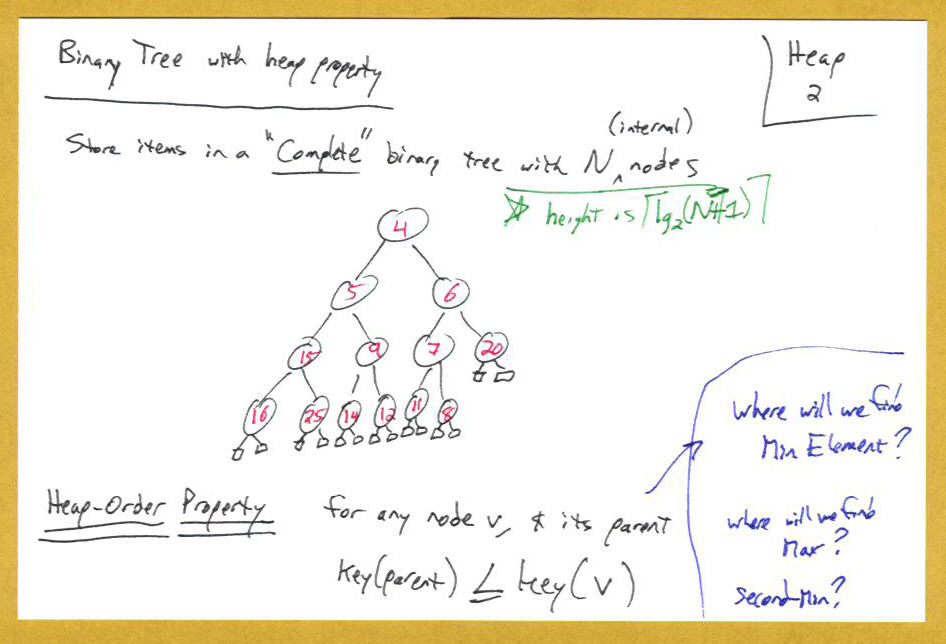 Binary Tree with heap property
Heap
2
(internal)
Store items in a "Complete" binary tree with N ^ nodes
height is ⌈lg₂(N+1)⌉
4
5 6
15 9 7 20
16 25 14 12 11 8
where will we find
Min Element?
Heap-Order Property for any node v, & its parent
key(parent) ≤ key(v)
where will we find
Max?
Second-Min?